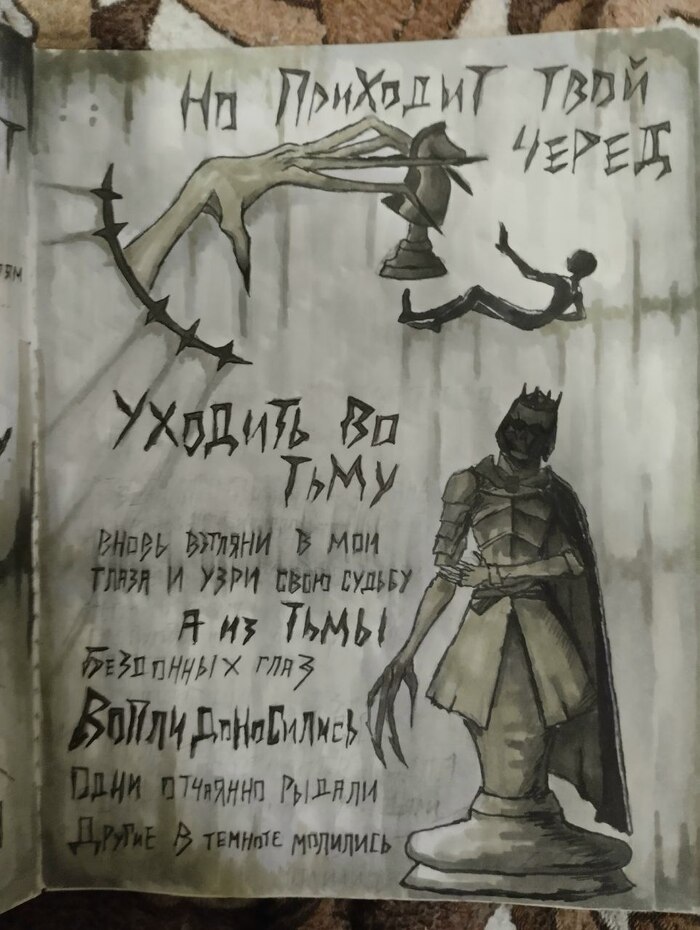 Но приходит твой
черед
Уходить во
тьму
вновь взгляни в мои
глаза и узри свою судьбу
А из тьмы
бездонных глаз
Вопли доносились
Одни отчаянно рыдали
Другие в темноте молились